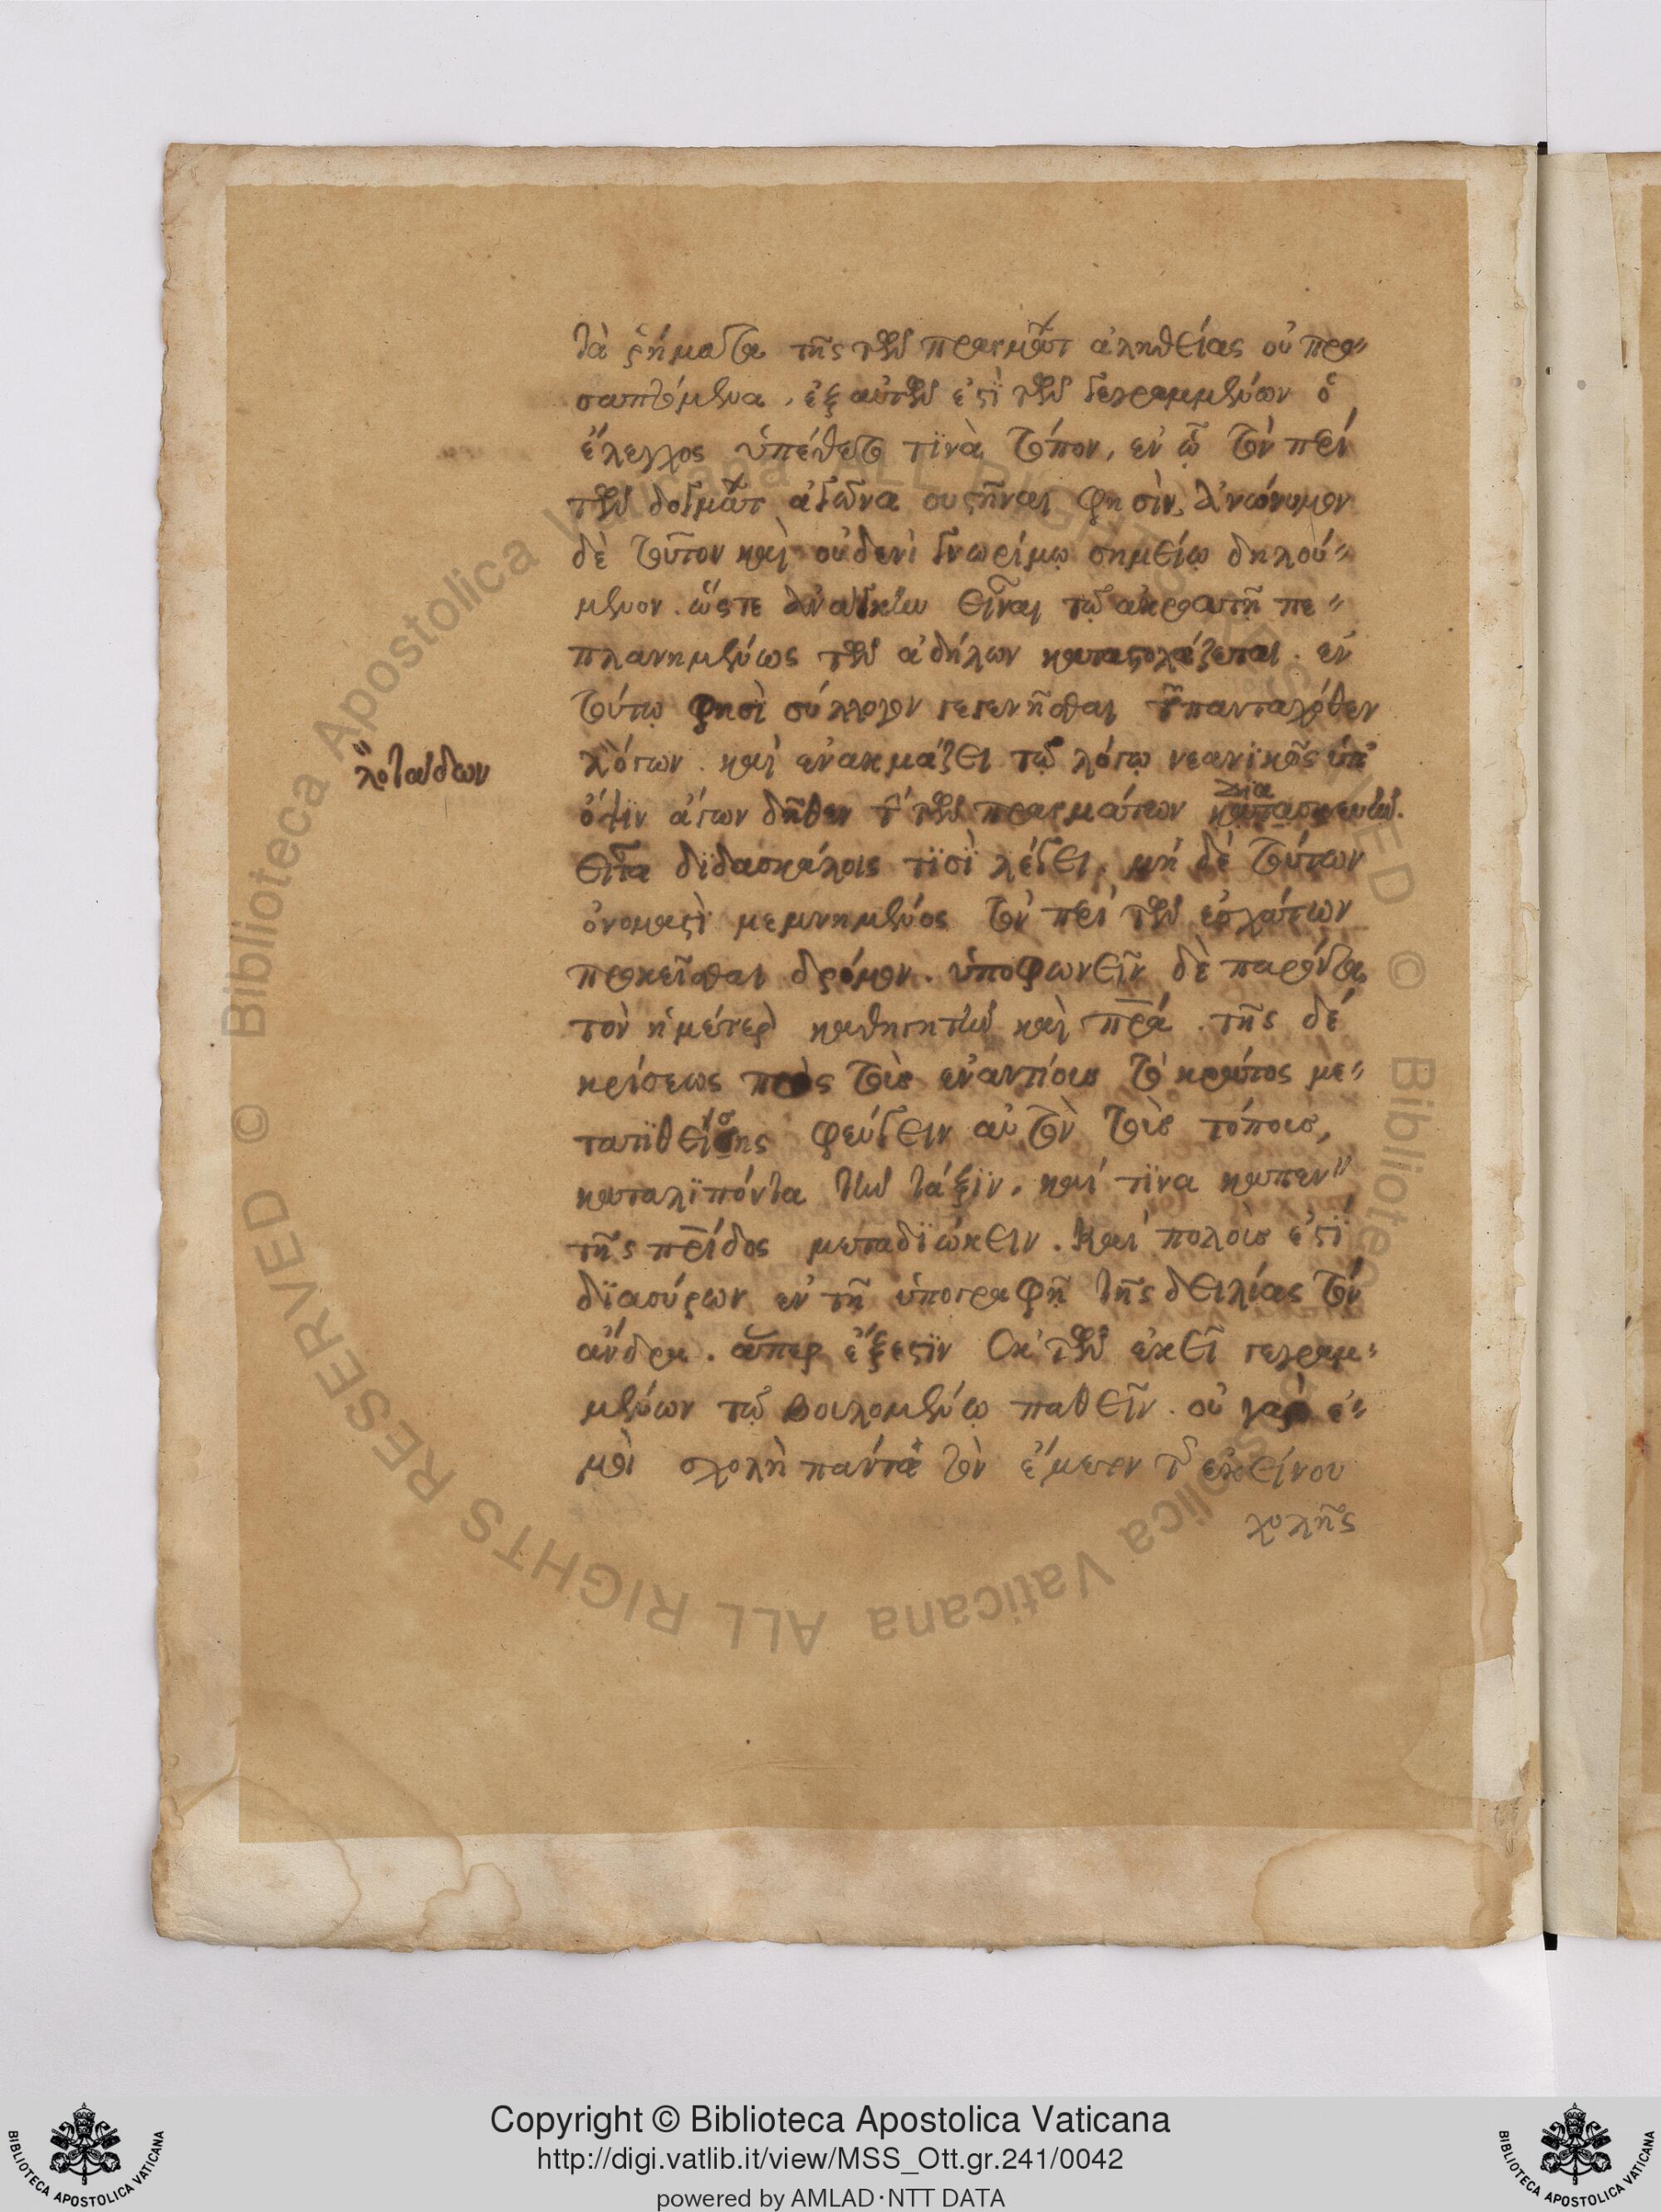 τὰ ῥήματα τῆς τῶν πραγμάτ ἀληθείας οὐ προ"
σαπτόμενα, ἐξ αὐτῶν ἐστὶ τῶν γεγραμμένων ὁ
ἔλεγχος ὑπέθετο τϊνὰ τόπον, ἐν ᾧ τὸν περὶ
τῶν δογμάτ ἀγῶνα συστῆναι φησὶν, ἀνώνυμον
δὲ τοῦτον καὶ οὐδενὶ γνωρίμῳ σημείῳ δηλού"
μενον. ὥστε ἀνάγκην εἶναι τῷ ἀκροατῇ πε"
πλανημένως τῶν ἀδήλων καταστοχάζεται. ἐν
τούτῳ φησὶ σύλλογον γεγενῆσθαι τῶν πανταχόθεν
λογάδων
λόγων. καὶ ἐνακμάζει τῷ λόγῳ νεανϊκῶς ὑπ'
διὰ
ὄψϊν ἄγων δῆθεν τὴν τῶν πραγμάτων κατασκευὴν.
εἶτα δϊδασκάλοις τϊσϊ λέγει, μὴ δὲ τούτων
ὀνομαστὶ μεμνημένος τὸν περὶ τῶν ἐσχάτων
προκεῖσθαι δρόμον. ὑποφωνεῖν δὲ παρόντα
τὸν ἡμέτερον καθηγητὴν καὶ πρα. τῆς δὲ
κρίσεως πρὸς τοὺς ἐναντίους τὸ κράτος με"
τατϊθείσης φεύγειν αὐτὸν τοὺς τόπους,
καταλϊπόντα τὴν τάξϊν, καί τϊνα καπεν"
τῆς πρίδος μεταδϊώκειν. καὶ πολὺς ἐστὶ
δϊασύρων ἐν τῇ ὑπογραφῇ τῆς δειλίας τὸν
ἄνδρα. ἅπερ ἔξεστϊν ἐκ τῶν ἐκεῖ γεγραμ"
μένων τῷ βουλομένῳ παθεῖν. οὐ γὰρ ἐ"
μοὶ σχολὴ πάντα τὸν ἔμετον τῆς ἐκείνου
χολῆς
Copyright © Biblioteca Apostolica Vaticana
http://digi.vatlib.it/view/MSS_Ott.gr.241/0042
powered by AMLAD·NTT DATA